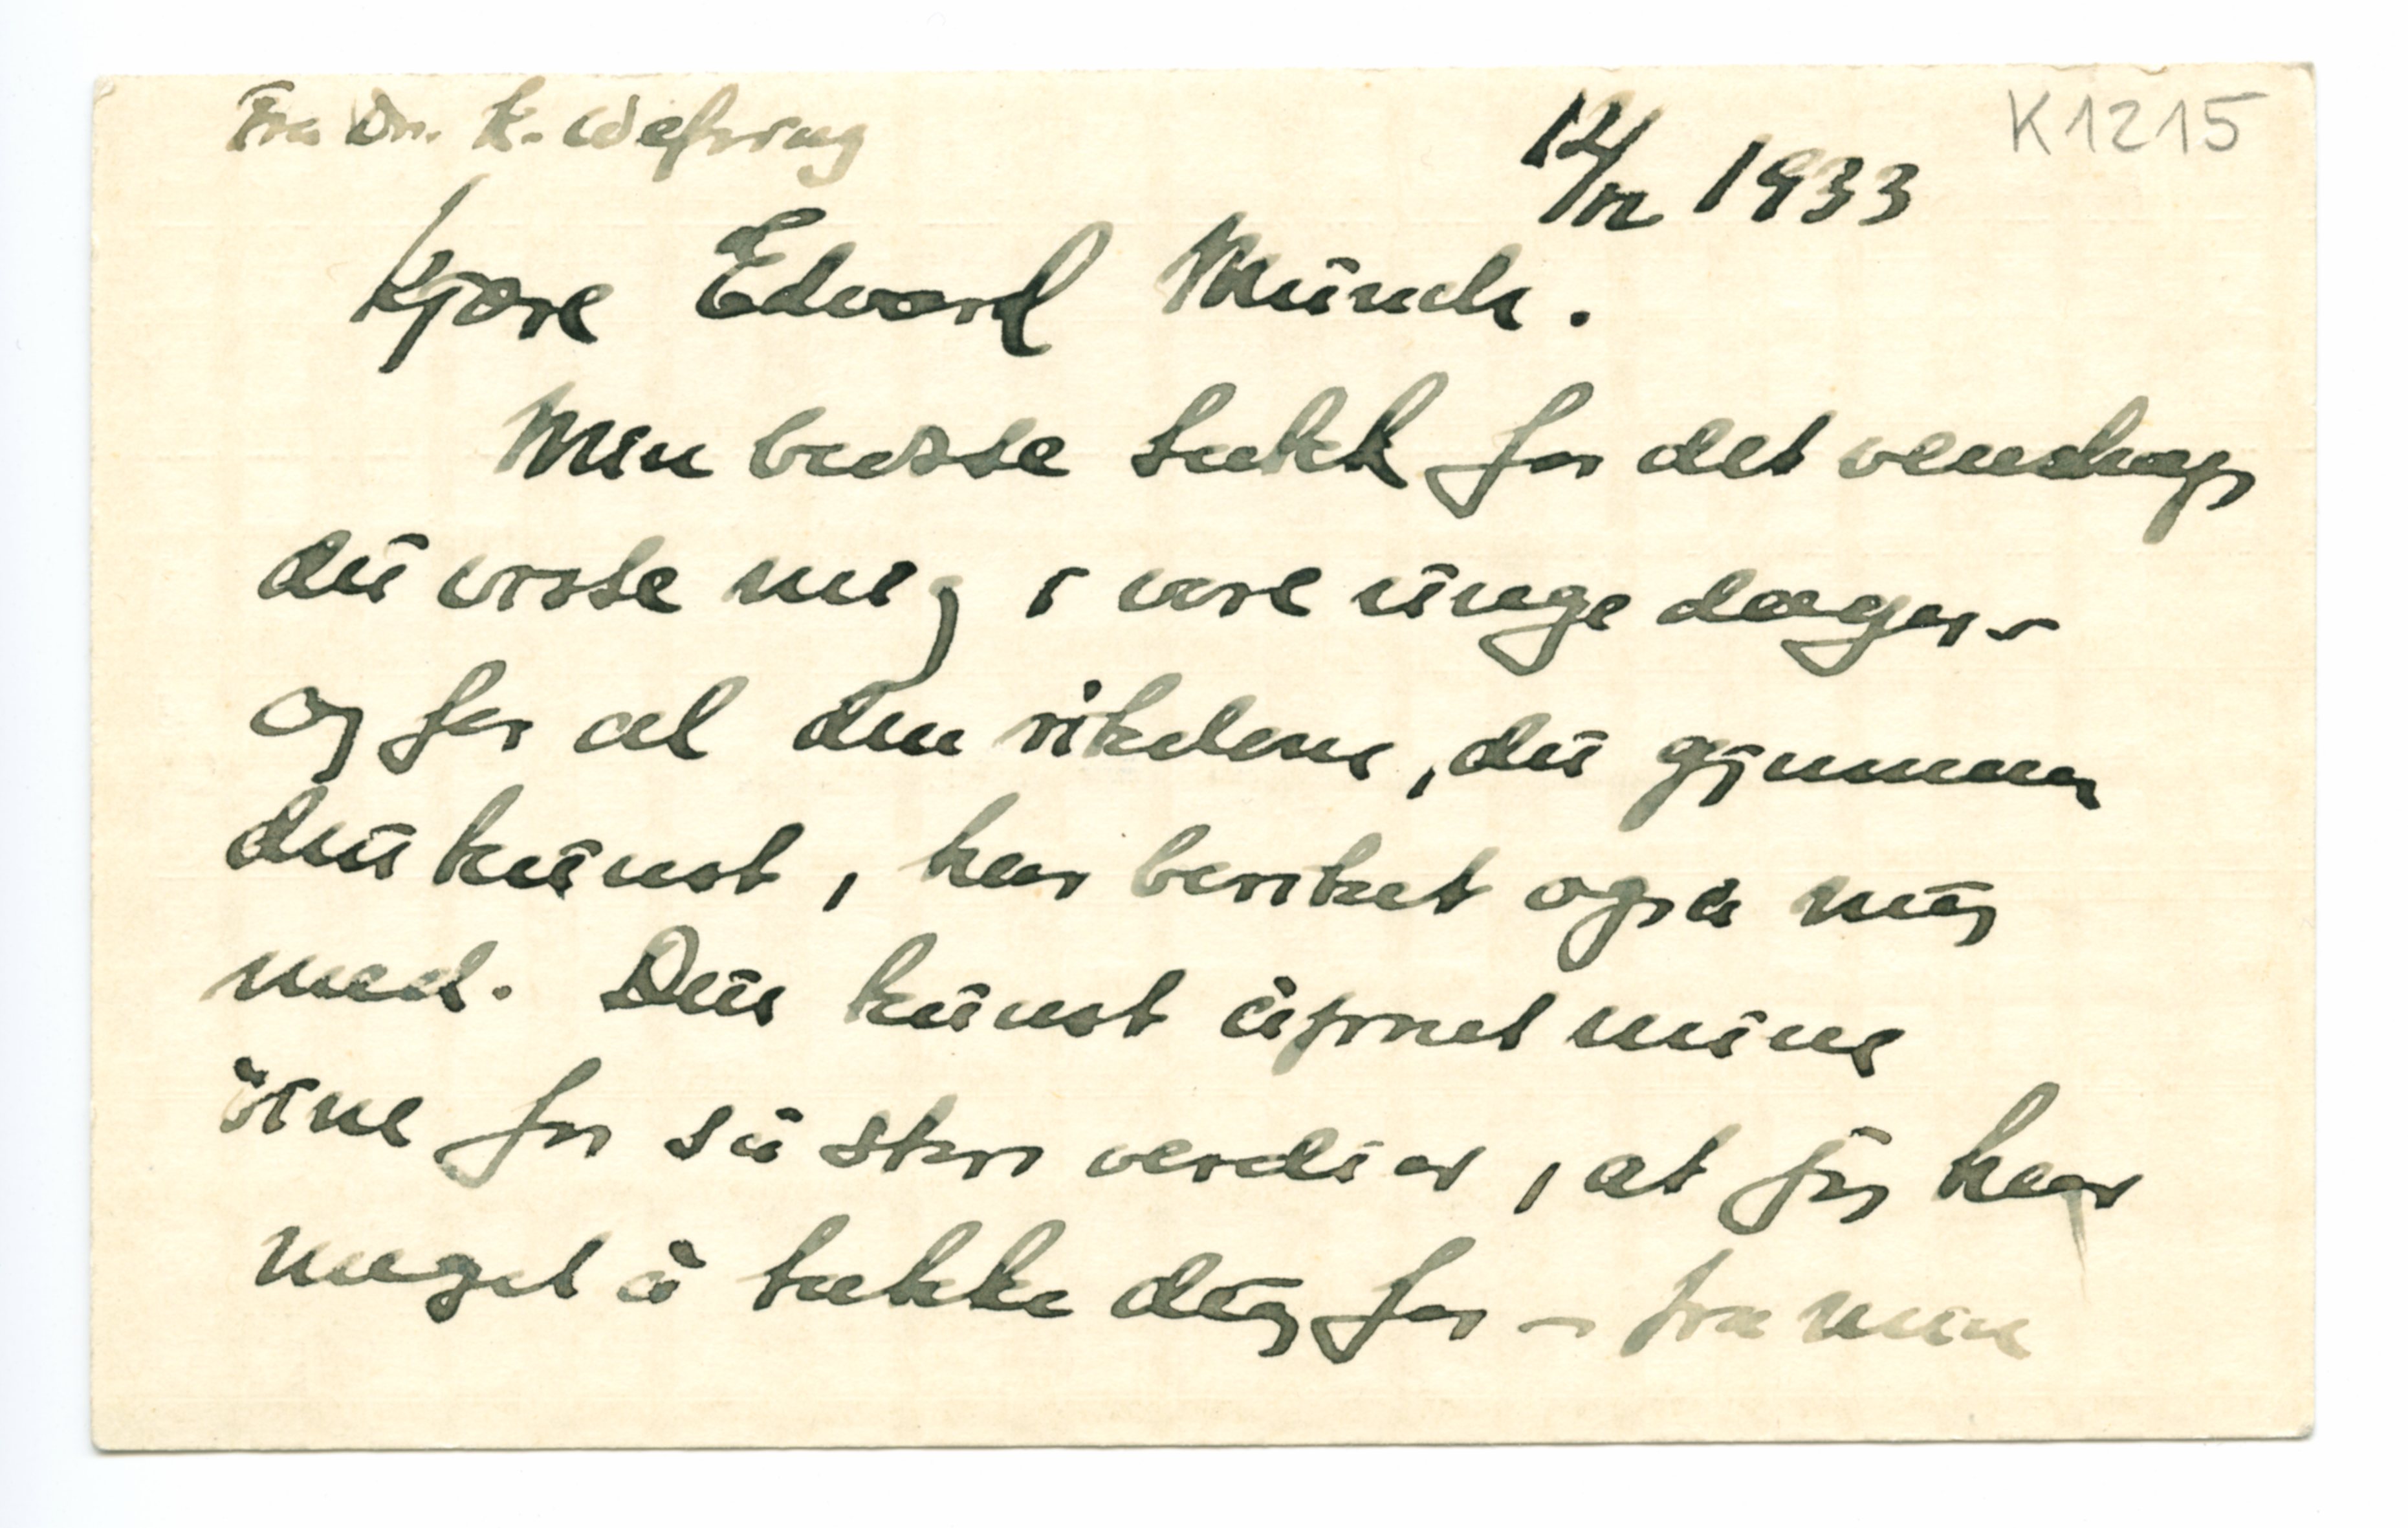 Fra Dr. K. Wefring
12/12 1933
K1215
Kjære Edvard Münch.
Min bedste takk for det venskap
du viste mig i våre unge dager –
og for al den rikdom, du gjennem
din kunst, har beriket også mig
med. Din kunst åpnet mine
öine for så store verdier, at jeg har
meget å takke dig for – fra min